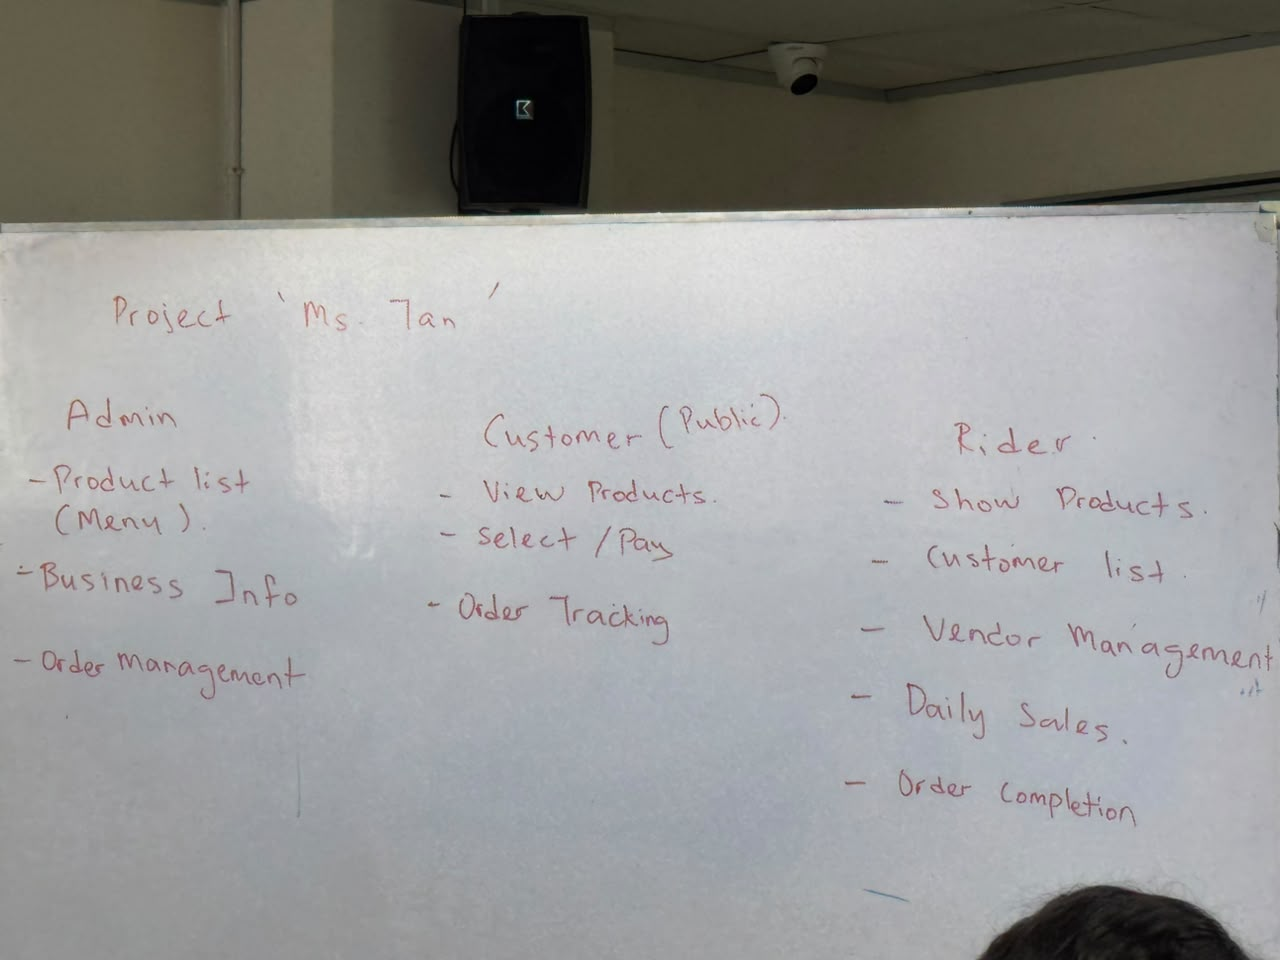 Project 'Ms. Tan'
Admin
- Product list
(Menu).
- Business Info
- Order management
Customer (Public).
- View Products.
- Select / Pay
- Order Tracking
Rider.
- Show Products.
- Customer list.
- Vendor Management
- Daily Sales.
- Order Completion